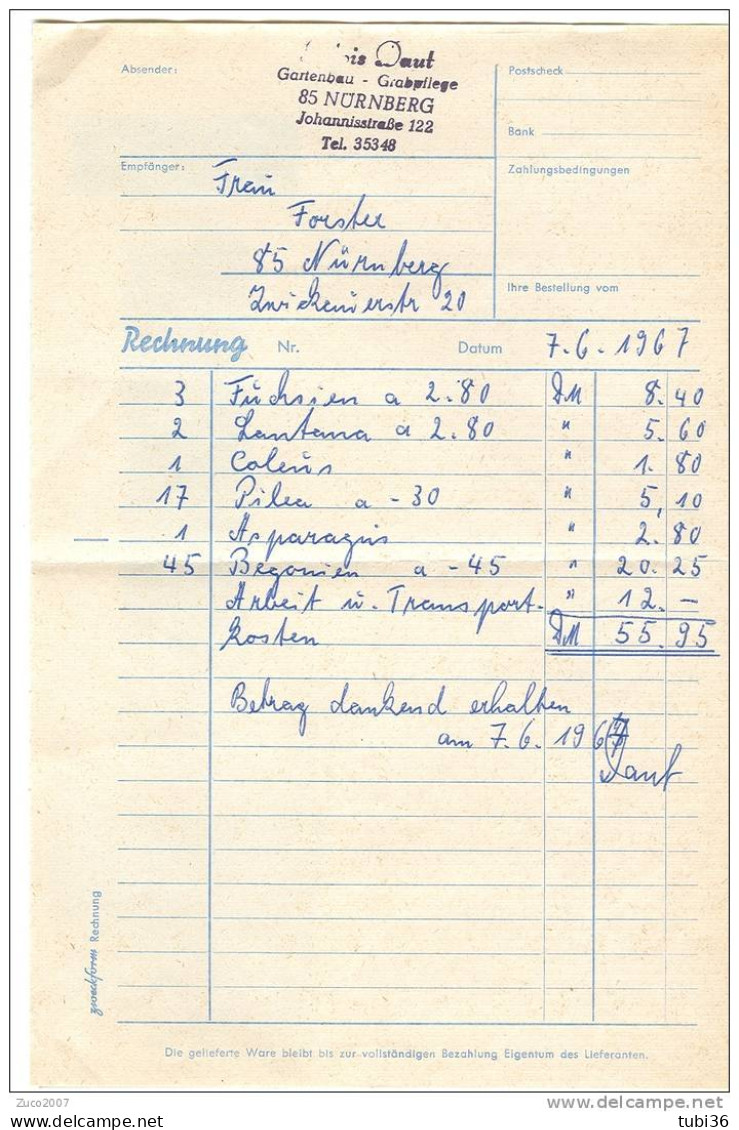 Absender:
Daut
Gartenbau - Grabpflege
85 NÜRNBERG
Johannisstraße 122
Tel. 35348
Postscheck
Bank
Empfänger:
Frau
Forster
85 Nürnberg
Zwickauerstr 20
Zahlungsbedingungen
Ihre Bestellung vom
Rechnung Nr. Datum 7.6.1967
3 Fuchsien a 2.80 DM 8.40
2 Lantana a 2.80 " 5.60
1 Coleus " 1.80
17 Pilea a -30 " 5,10
1 Asparagus " 2.80
45 Begonien a -45 " 20.25
Arbeit u. Transport- " 12.-
kosten DM 55.95
Betrag dankend erhalten
am 7.6.1967
Daut
zweckform Rechnung
Die gelieferte Ware bleibt bis zur vollständigen Bezahlung Eigentum des Lieferanten.
Zuco2007
www.delcampe.net
tubi36